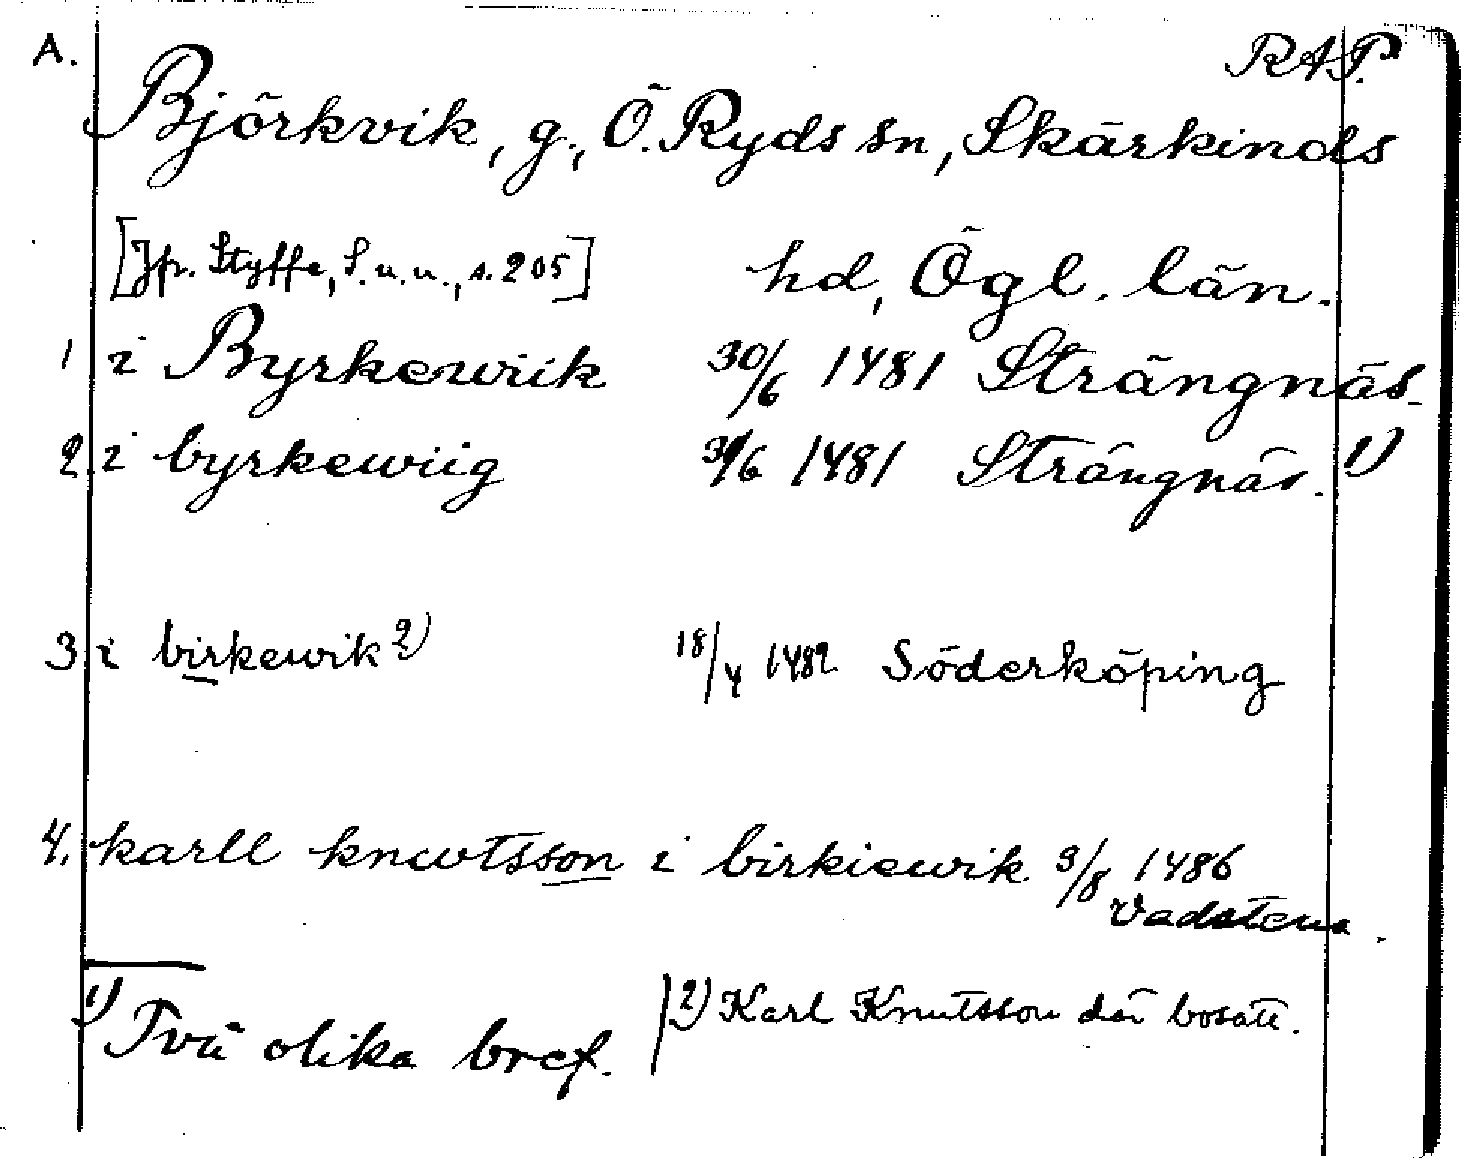 A.
RAP.
Björkvik, g., Ö. Ryds sn, Skärkinds
[Jfr. Styffe, S.u.u., s. 205] hd, Ögl. län.
1 i Byrkewiik 30/6 1481 Strängnäs.
2. i byrkewiig 30/6 1481 Strängnäs. 1)
3 i birkewik 2) 18/4 1482 Söderköping
4. karll knwtsson i birkiewik 9/8 1486
Vadstena.
1) Två olika bref.
2) Karl Knutsson där bosatt.